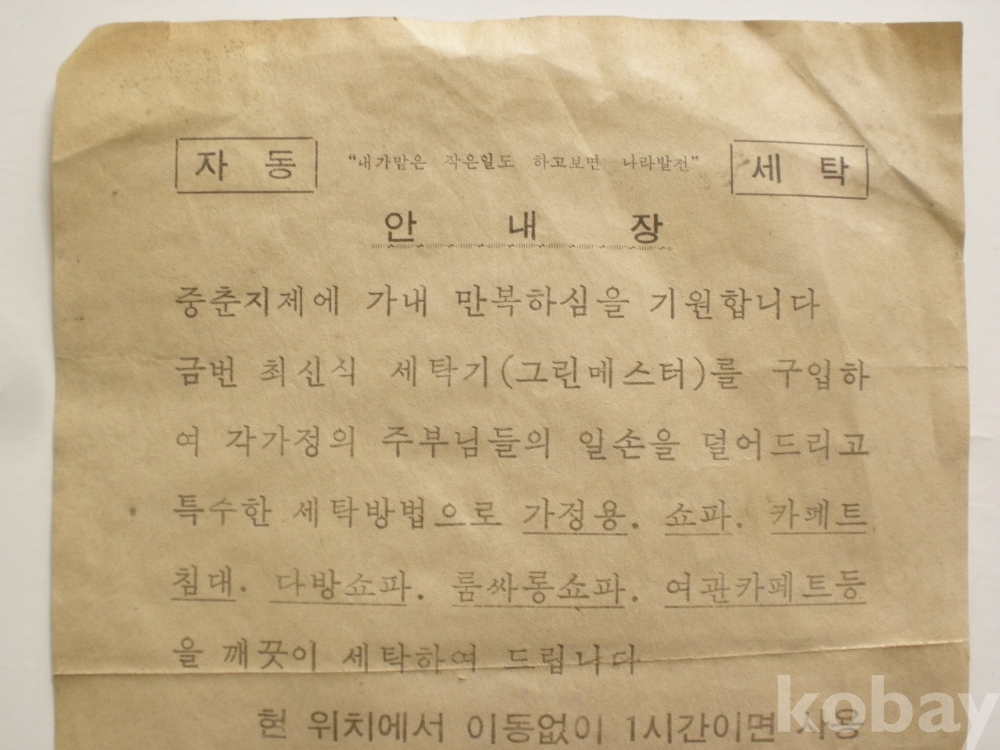 자 동 "내가맡은 작은일도 하고보면 나라발전" 세 탁
안 내 장
중춘지제에 가내 만복하심을 기원합니다
금번 최신식 세탁기(그린메스터)를 구입하
여 각가정의 주부님들의 일손을 덜어드리고
특수한 세탁방법으로 가정용. 쇼파. 카페트
침대. 다방쇼파. 룸싸롱쇼파. 여관카페트등
을 깨끗이 세탁하여 드립니다
헌 위치에서 이동없이 1시간이면 사용
kobay